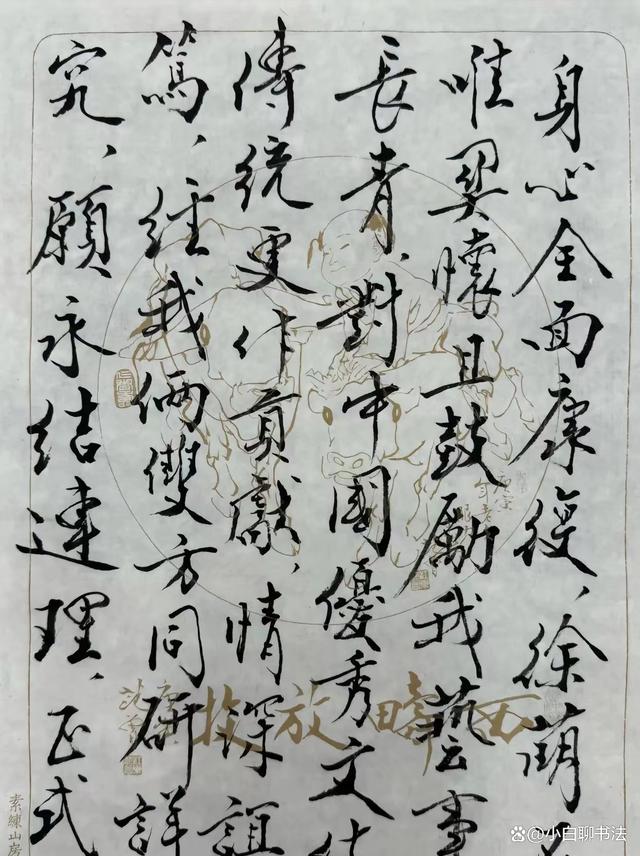 身心全面康復、徐萌又
唯契懷且鼓勵我藝事
長青、對中國優秀文化
傳統更作貢獻、情深誼
篤、經我倆雙方同研詳
究、願永結連理、正式
西疇放牧
素練山房
小白聊书法